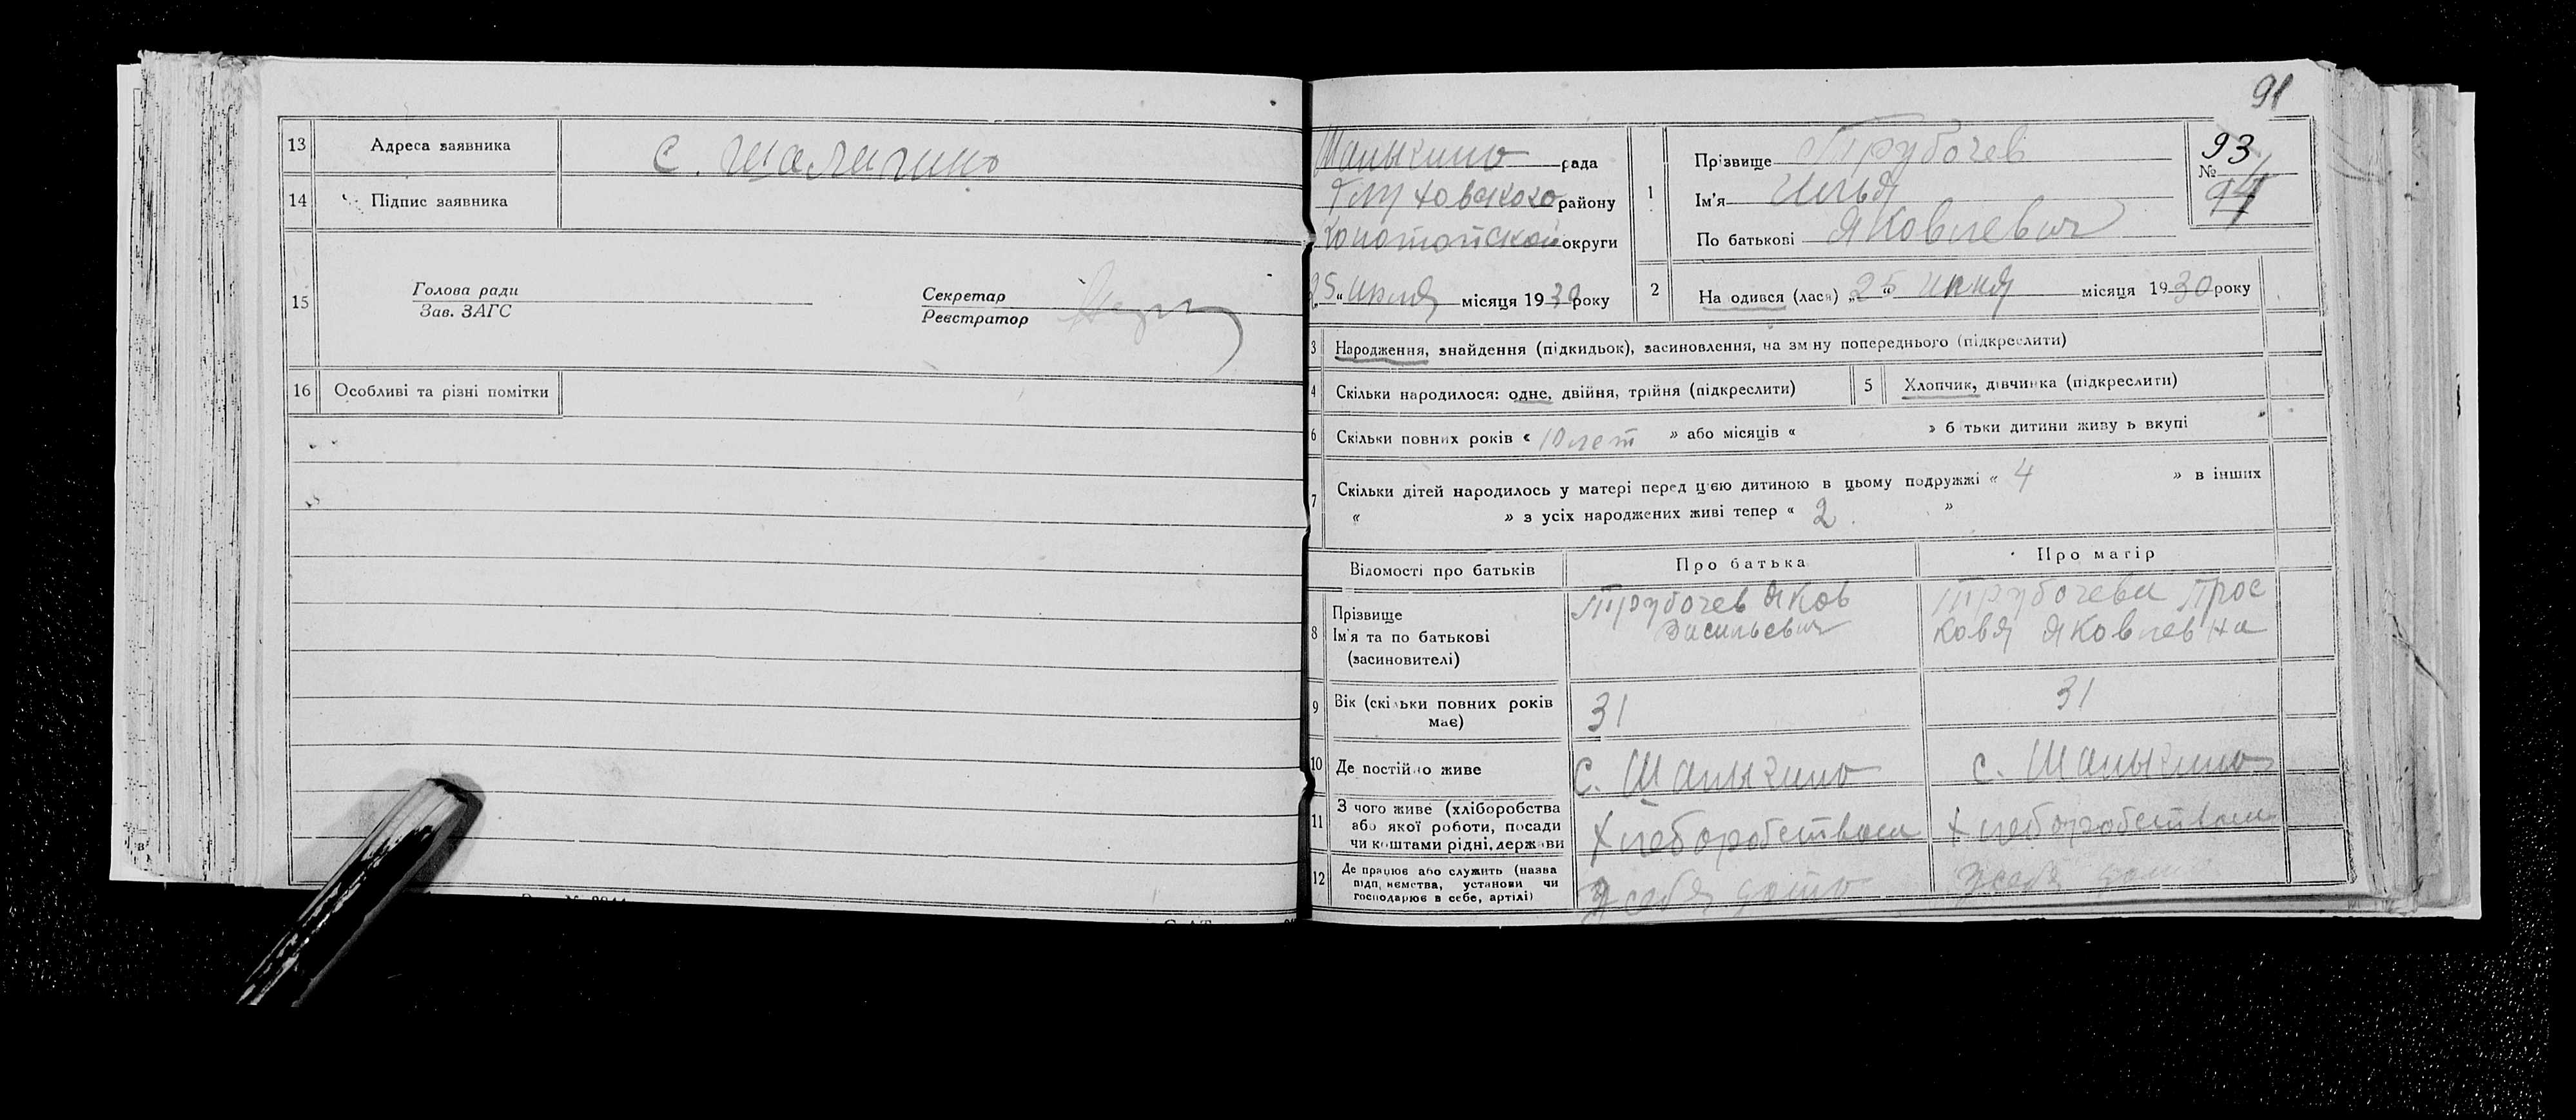 13 Адреса заявника с. Шалигино
14 Підпис заявника
15 Голова ради
Зав. ЗАГС
Секретар
Реєстратор
16 Особливі та різні помітки
91
Шалыгино рада
Глуховского району
Конотопской округи
25 " июля місяця 1930 року
1 Прізвище Трубочев
Ім'я Илья
По батькові Яковлевич
93
№
94
2 На одився (лася) „ 25 " июля місяця 1930 року
3 Народження, знайдення (підкидьок), засиновлення, на зм ну попереднього (підкреслити)
4 Скільки народилося: одне, двійня, трійня (підкреслити)
5 Хлопчик, дівчинка (підкреслити)
6 Скільки повних років « 10 лет » або місяців « » б тьки дитини живу ь вкупі
7 Скільки дітей народилось у матері перед цією дитиною в цьому подружжі « 4 » в інших
« » з усіх народжених живі тепер « 2 »
Відомості про батьків
Про батька
Про матір
8 Прізвище
Ім'я та по батькові
(засиновителі)
Трубочев Яков
Васильевич
Трубочева Прос
ковя Яковлевна
9 Вік (скільки повних років
має)
31
31
10 Де постійно живе
с. Шалыгино
с. Шалыгино
11 З чого живе (хліборобства
або якої роботи, посади
чи коштами рідні, держави
Хлеборобством
Хлеборобством
12 Де працює або служить (назва
підп, ємства, установи чи
господарює в себе, артілі)
У себя дома
У себя дома